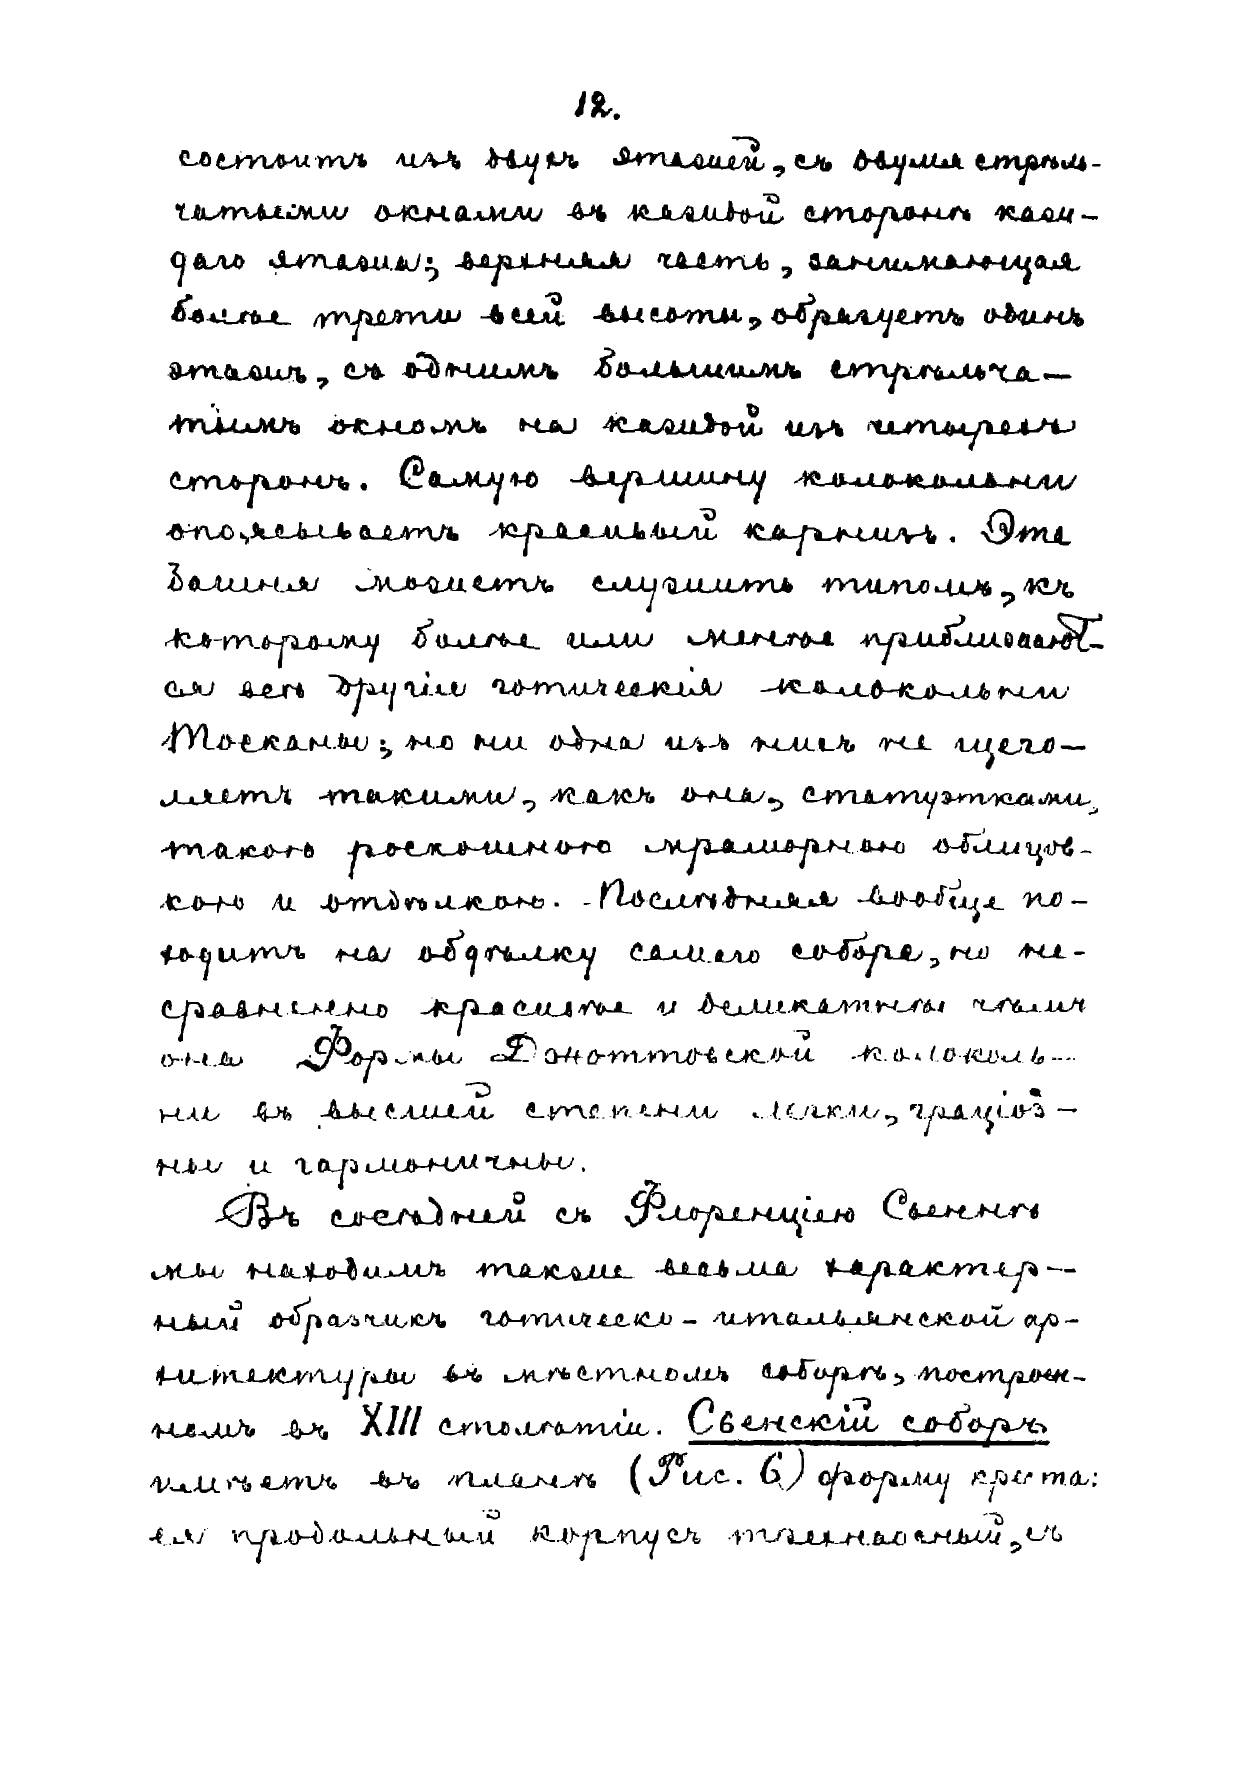 12.
состоитъ изъ двухъ этажей, съ двумя стрѣль-
чатыми окнами въ каждой сторонѣ каж-
даго этажа; верхняя часть, занимающая
болѣе трети всей высоты, образуетъ одинъ
этажъ, съ однимъ большимъ стрѣльча-
тымъ окномъ на каждой изъ четырехъ
сторонъ. Самую вершину колокольни
опоясываетъ красивый карнизъ. Эта
башня можетъ служить типомъ, къ
которому болѣе или менѣе приближают-
ся всѣ другія готическія колокольни
Тосканы; но ни одна изъ нихъ не щего-
ляетъ такими, какъ она, статуэтками,
такою роскошною мраморною облицов-
кою и отдѣлкою. Послѣдняя вообще по-
ходитъ на обдѣлку самаго собора, но не-
сравненно красивѣе и деликатнѣе чѣмъ
она Формы Джоттовской колоколь-
ни въ высшей степени легки, граціоз-
ны и гармоничны.
Въ сосѣдней съ Флоренціею Сьеннѣ
мы находимъ также весьма характер-
ный образчикъ готическо-итальянской ар-
хитектуры въ мѣстномъ соборѣ, построен-
номъ въ XIII столѣтіи. Сьенскій соборъ
имѣетъ въ планѣ (Рис. 6) форму креста:
ея продольный корпусъ трехнаосный, съ